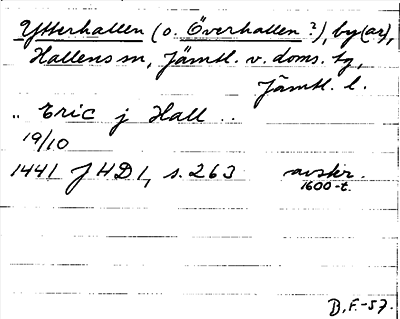 Ytterhallen (o. Överhallen?), by(ar),
Hallens sn, Jämtl. v. doms. tg,
Jämtl. l.
.. Eric j Hall ..
19/10
1441 JHD1, s. 263 avskr.
1600-t.
B.F.-57.